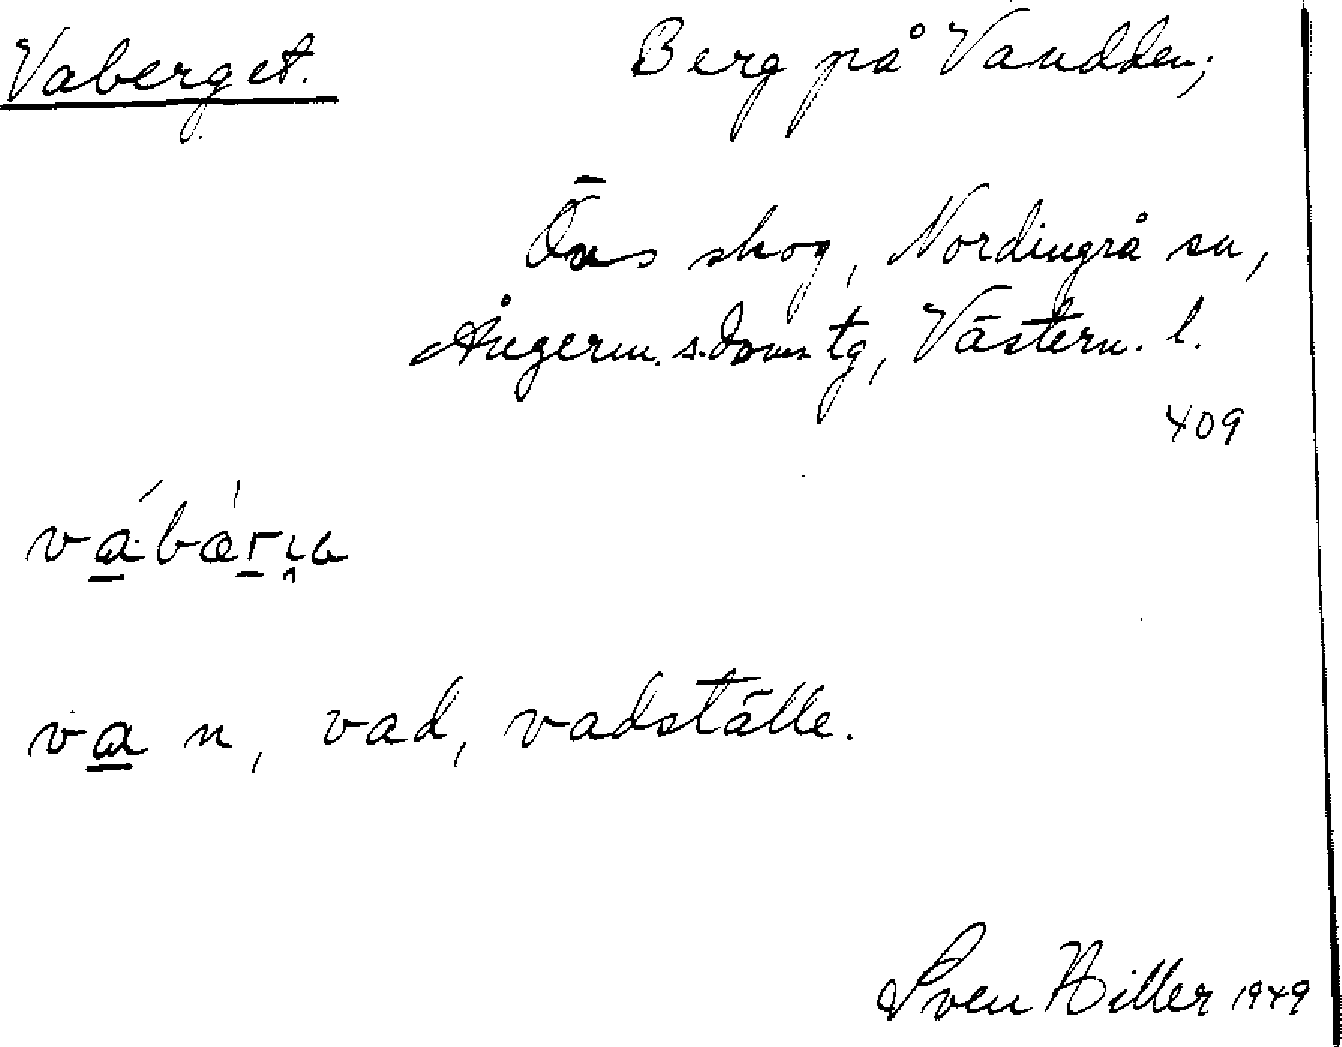 Vaberget. Berg på Vaudden;
Öas skog, Nordingrå sn,
Ångerm. s. doms tg, Västern. l.
409
va n, vad, vadställe.
Sven Hiller 1949